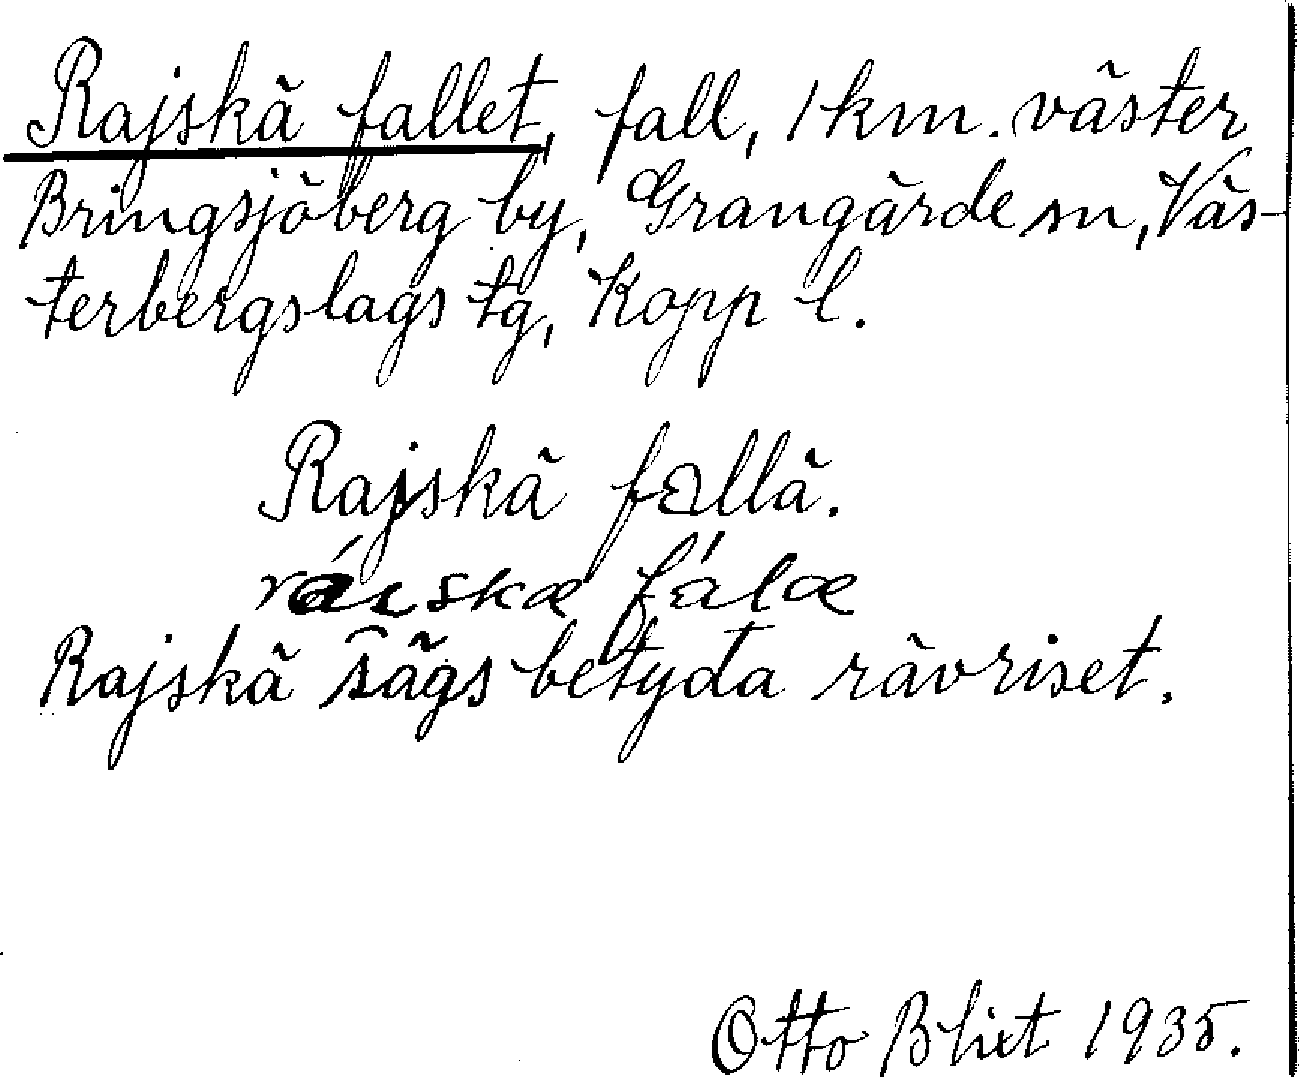 Rajskä fallet, fall, 1 km. väster
Bringsjöberg by, Grangärde sn, Väs-
terbergslags tg, Kopp l.
Rajskä fallä.
ráiskæ fálæ
Rajskä sägs betyda rävriset.
Otto Blixt 1935.